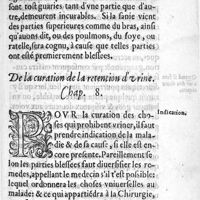 sont toſt guaries tant d'vne partie que d'au-
tre, demeurent incurables. Si la ſanie vient
des parties ſuperieures comme du bras, ainſi
qu'auons dit, ou des poulmons, du foye, ou
ratelle, ſera cognu, à cauſe que telles parties
ont eſté premierement bleſſees.
De la curation de la retention d'vrine.
Chap. 8.
POVR la curation des cho-
ſes qui prohibent vriner, il faut
prendre indication de la mala-
die & de ſa cauſe, ſi elle eſt en-
core preſente. Pareillement ſe-
lon les parties bleſſees faut diuerſifier les re-
medes, appellant le medecin s'il eſt poſsible:
lequel ordonnera les choſes vniuerſelles au
malade: & ce qui appartiédra à la Chirurgie,
Indication.